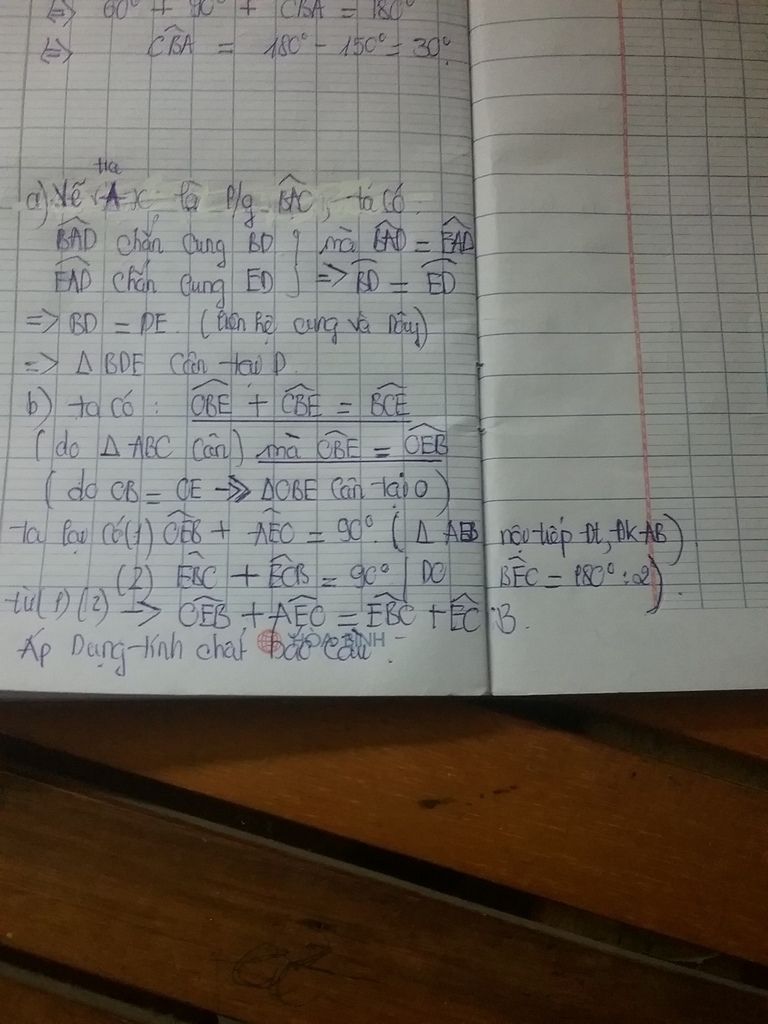 ⇔ 60° + 90° + CBA = 180°
⇔ CBA = 180° - 150° = 30°.
tia
a) Vẽ Ax là p/g BAC, ta có:
BAD chắn cung BD } mà BAD = EAD
EAD chắn cung ED } => BD = ED
=> BD = DE. (liên hệ cung và dây)
=> Δ BDE cân tại D.
b) ta có: OBE + CBE = BCE
(do Δ ABC cân) mà OBE = OEB
(do OB = OE => ΔOBE cân tại O)
ta lại có (1) OEB + AEO = 90°. (Δ AEB nội tiếp Đt, ĐK AB)
(2) EBC + ECB = 90° (DO BEC = 180° : 2).
từ (1) (2) => OEB + AEO = EBC + ECB.
Áp Dụng tính chất bắc cầu.
HÒA BÌNH